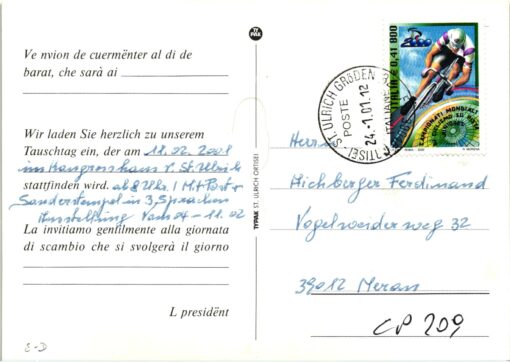 Ve nvion de cuermënter al di de
barat, che sarà ai
Wir laden Sie herzlich zu unserem
Tauschtag ein, der am 18.02.2001
im Kongresshaus v. St. Ulrich
stattfinden wird. ab 8 Uhr / Mit Post u
Sonderstempel in 3 Sprachen
Ausstellung vom 04 - 11.02
La invitiamo gentilmente alla giornata
di scambio che si svolgerà il giorno
L presidënt
S-D
TYPAK
TYPAK ST. ULRICH ORTISEI
ST. ULRICH GRÖDEN
POSTE
24-1.01.12
ITALIANE
ITALIA € 0,41 800
CAMPIONATI MONDIALI
Herrn
Aichberger Ferdinand
Vogelweiderweg 32
39012 Meran
CP 209